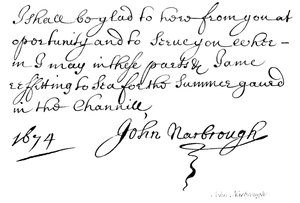 I shall be glad to here from you at
oportunity and to serue you wher-
in I may in these parts & I ame
refitting to Sea for the Summer gaurd
in the Channill
1674 John Narbrough
John Narbrough